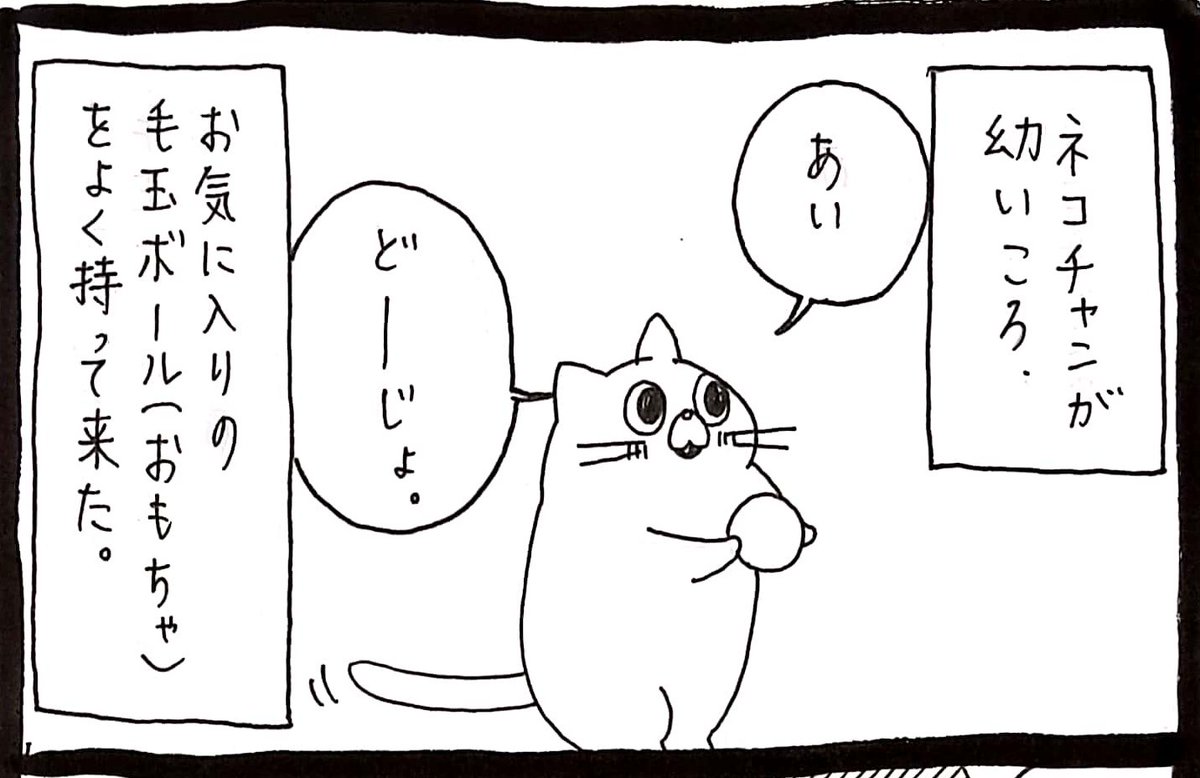 ネコチャンが
幼いころ.
あい
どーじょ。
お気に入りの
毛玉ボール(おもちゃ)
をよく持って来た。